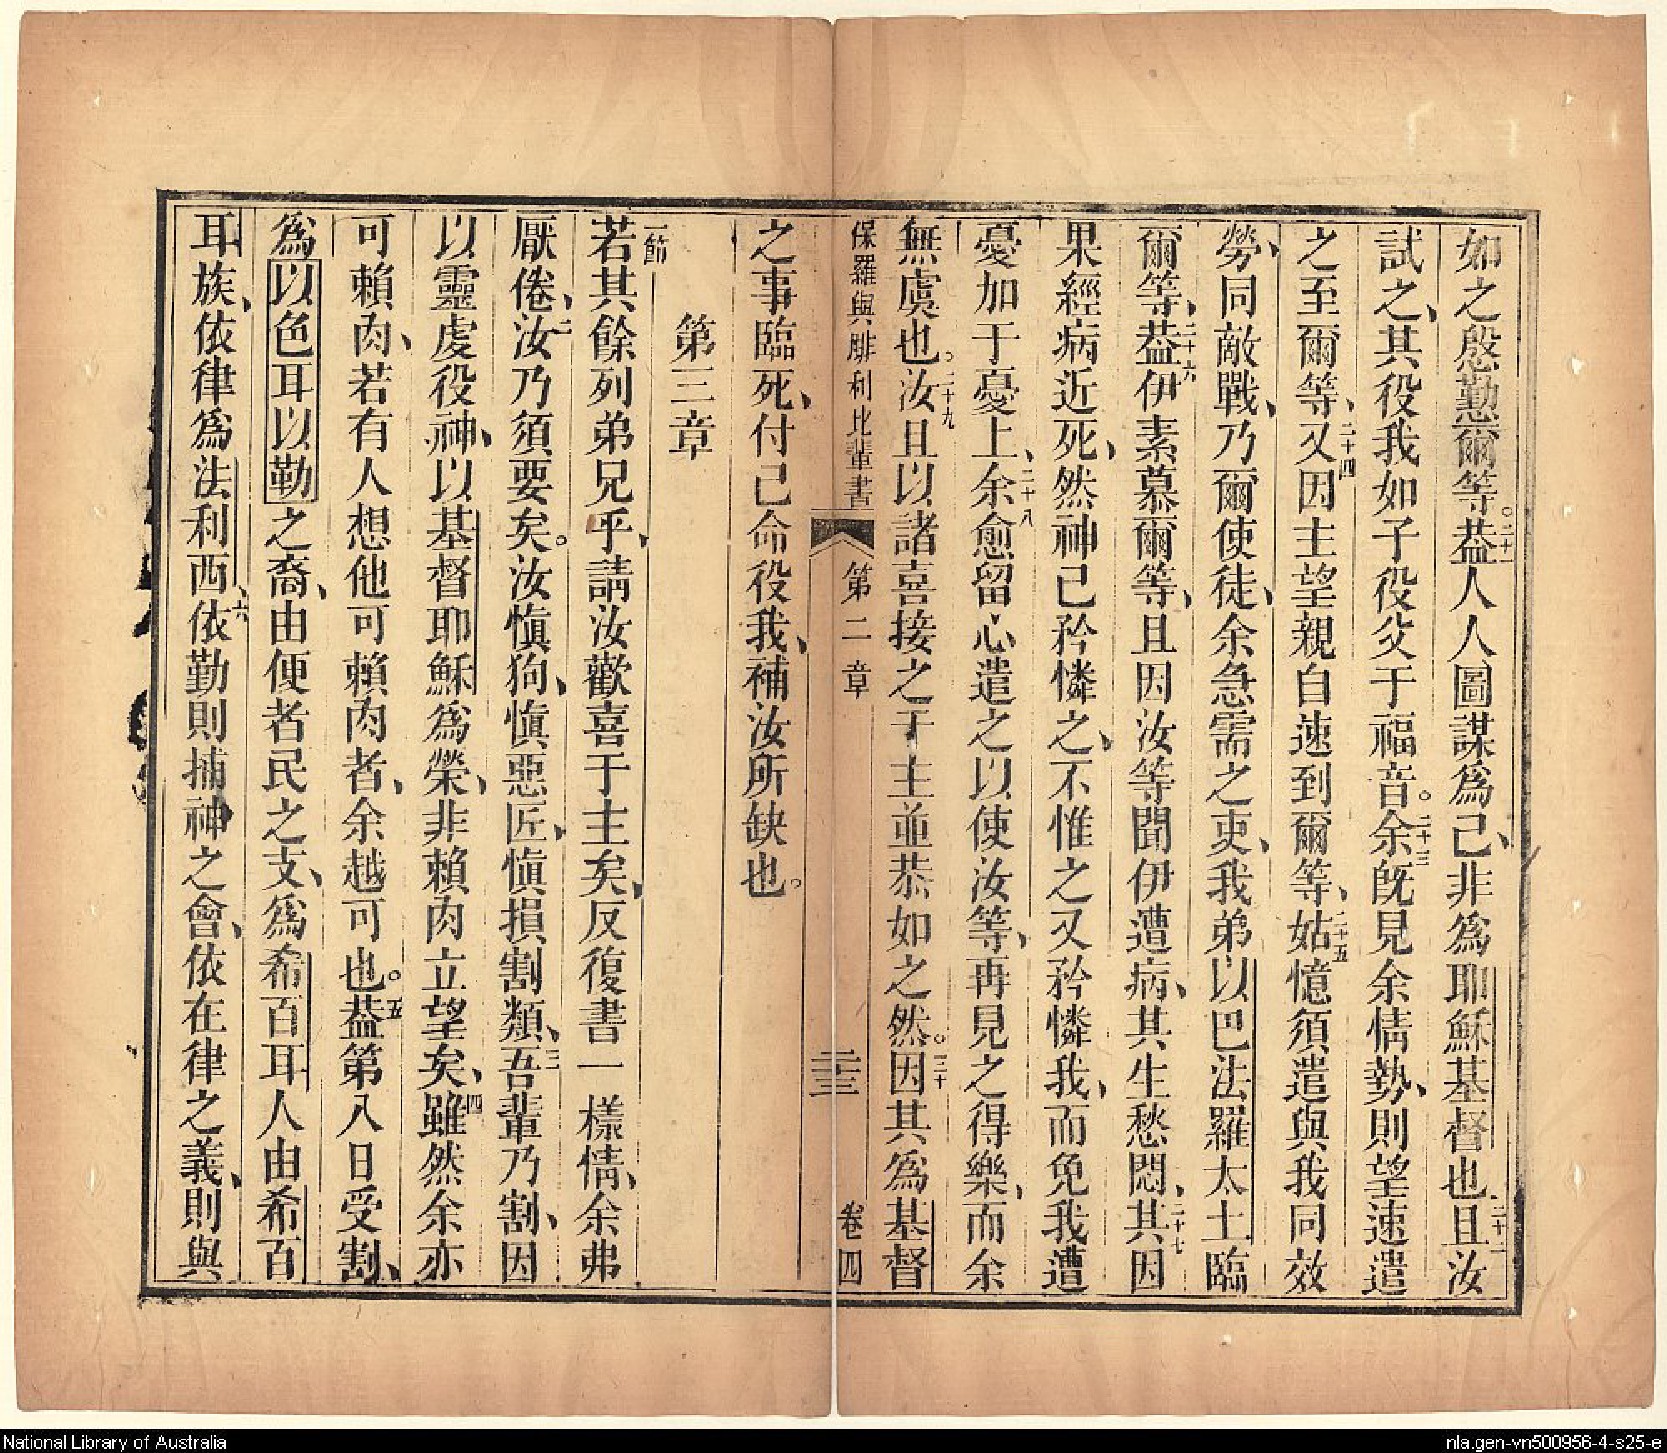 如之慇懃爾等。二十一蓋人人圖謀爲己、非爲耶穌基督也、二十二且汝
試之、其役我如子役父于福音。二十三余旣見余情勢、則望速遣
之至爾等、二十四又因主望親自速到爾等、二十五姑憶須遣與我同效
勞、同敵戰、乃爾使徒、余急需之吏、我弟以巴法羅太土臨
爾等、二十六蓋伊素慕爾等、且因汝等聞伊遭病、其生愁悶、二十七其因
果經病近死、然神己矜憐之、不惟之又矜憐我、而免我遭
憂加于憂上、二十八余愈留心遣之以使汝等、再見之得樂、而余
無虞也。二十九汝且以諸喜接之于主並恭如之然。三十因其爲基督
保羅與腓利比輩書 第二章 二十三 卷四
之事臨死、付己命役我、補汝所缺也。
第三章
一節若其餘列弟兄乎、請汝歡喜于主矣、反復書一樣情、余弗
厭倦、二汝乃須要矣。汝愼狗、愼惡匠、愼損割類、三吾輩乃割、因
以靈虔役神、以基督耶穌爲榮、非賴肉立望矣、四雖然余亦
可賴肉、若有人想他可賴肉者、余越可也。五蓋第八日受割、
爲以色耳以勒之裔、由便者民之支、爲希百耳人由希百
耳族、依律爲法利西、六依勤則捕神之會、依在律之義、則與
National Library of Australia
nla.gen-vn500956-4-s25-e